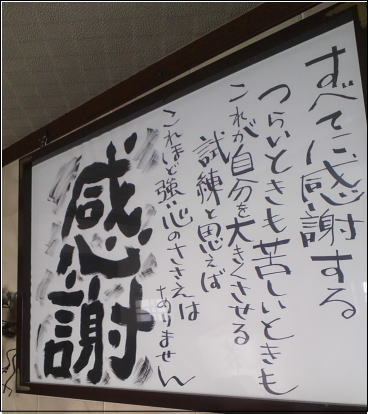 すべてに感謝する
つらいときも苦しいときも
これが自分を大きくさせる
試練と思えば
これほど強い心のささえは
ありません
感謝